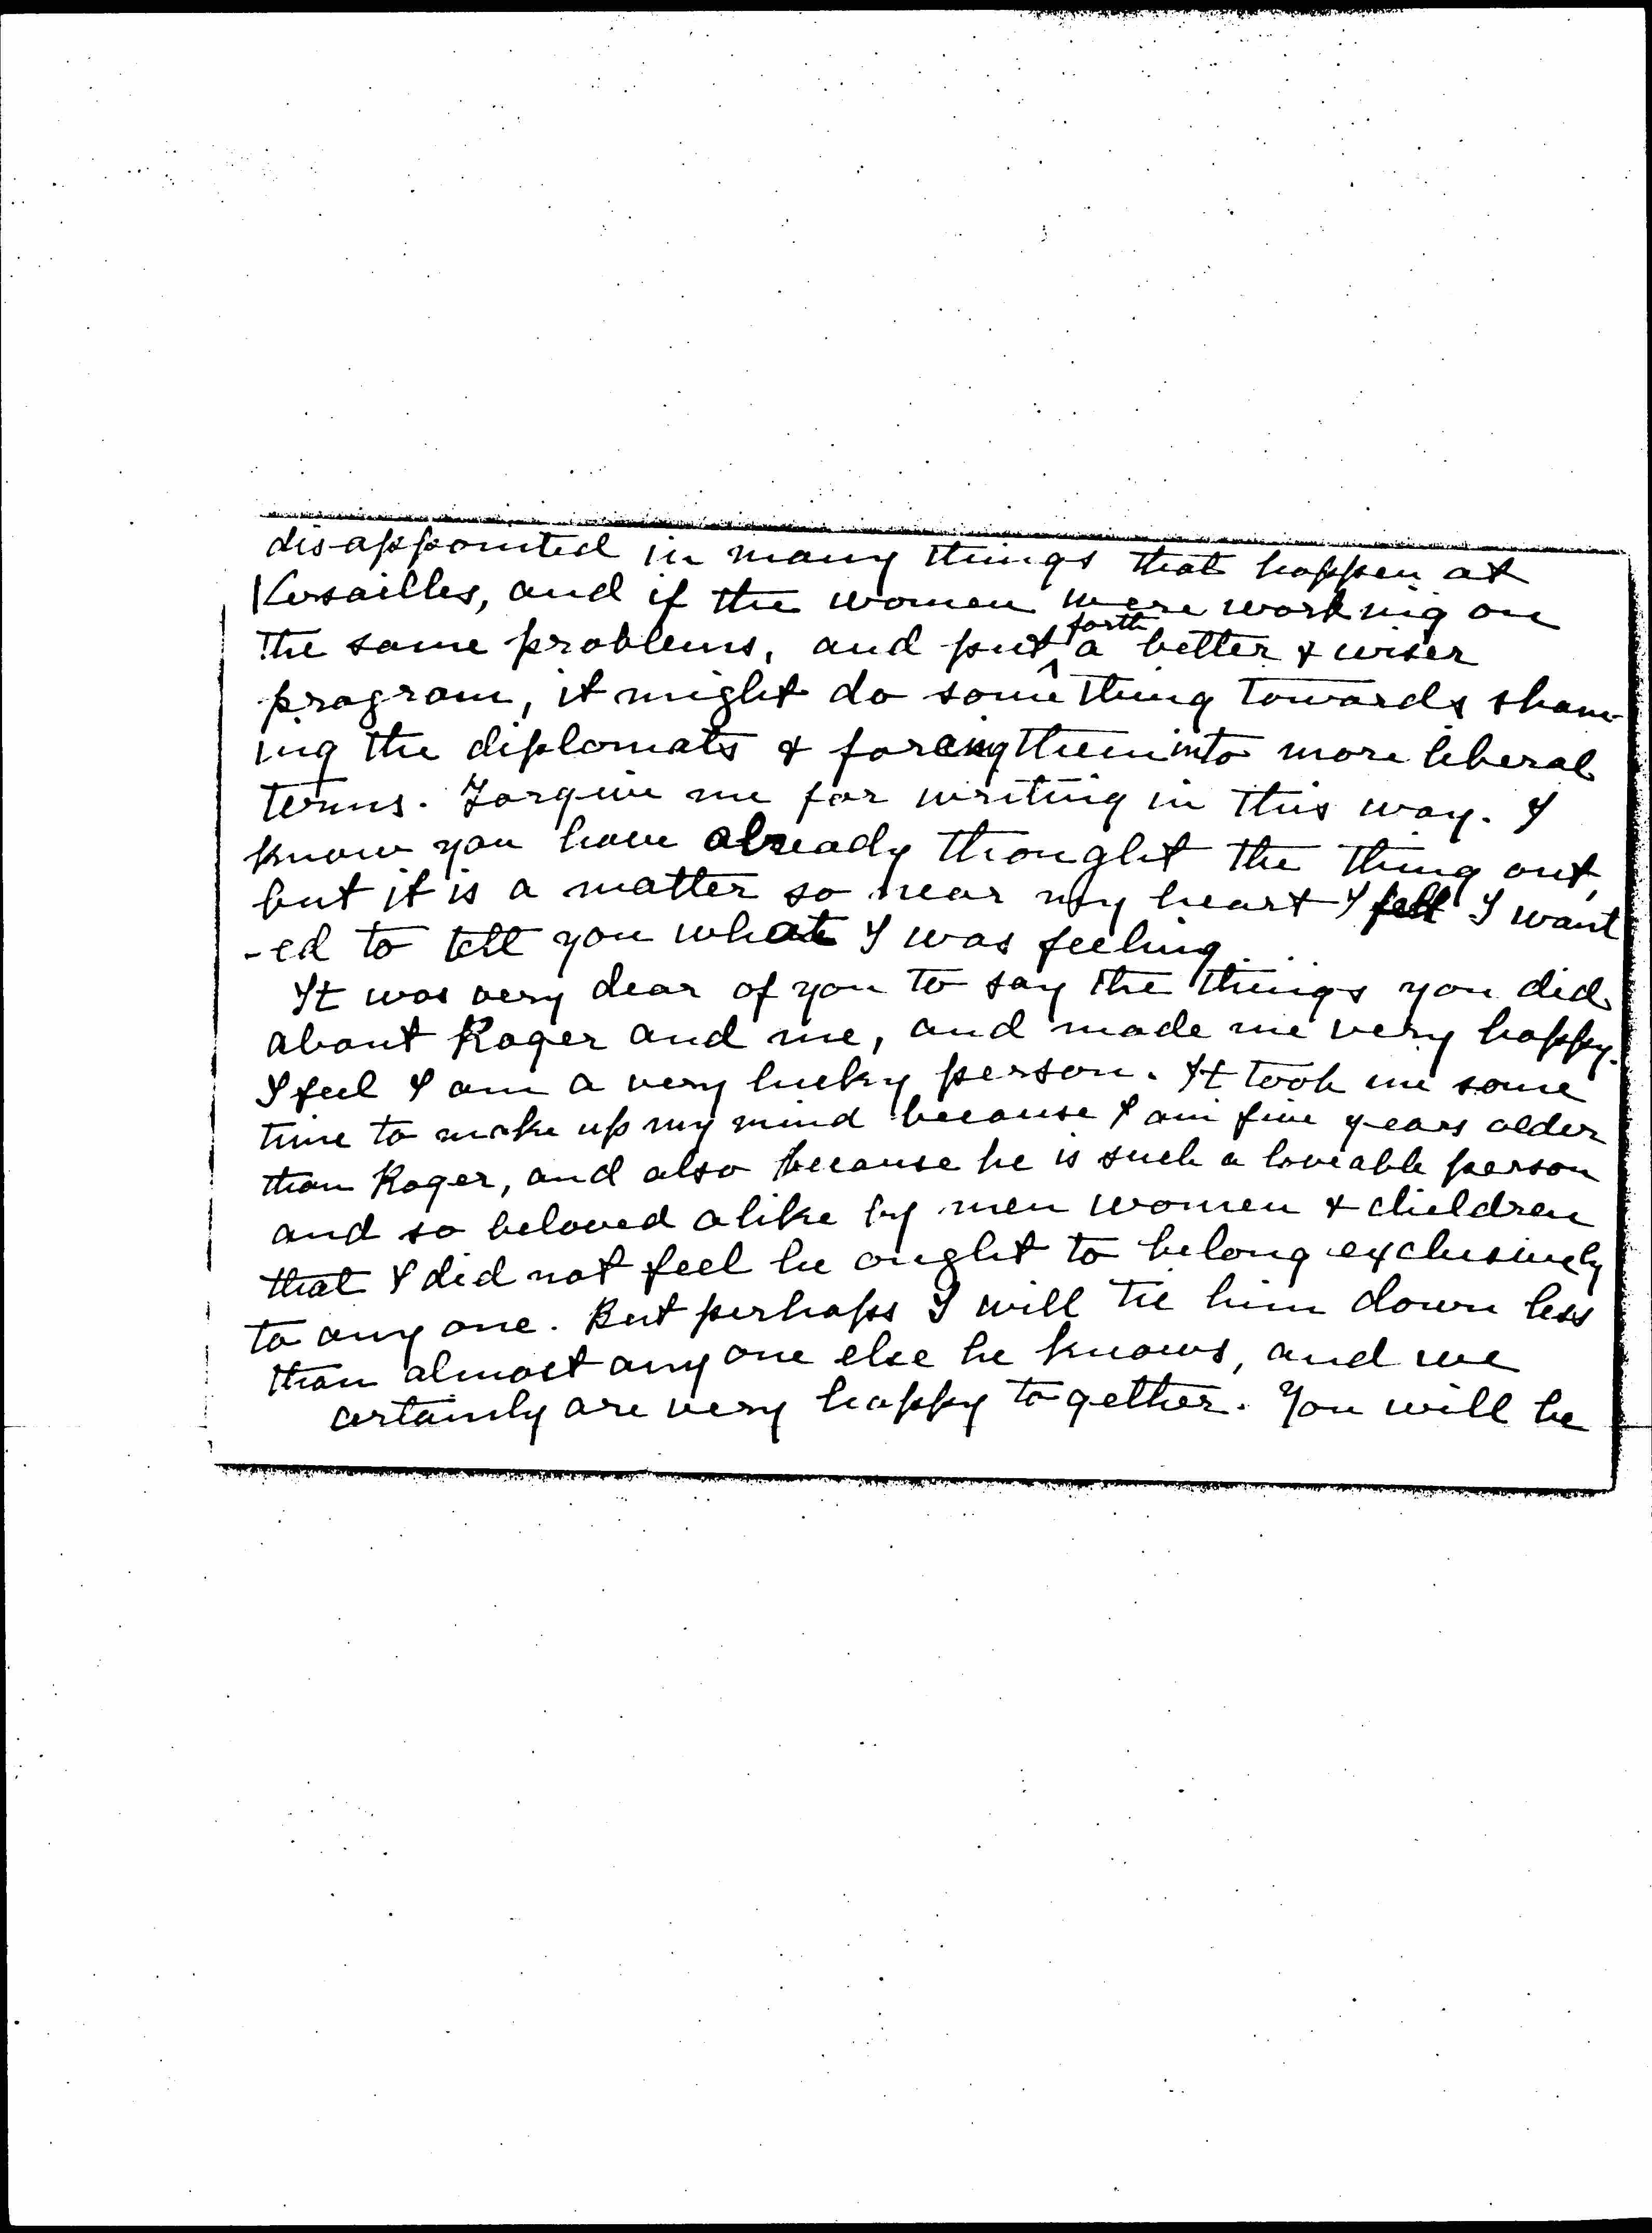 disappointed in many things that happen at
Versailles, and if the women were working on
the same problems, and put forth a better & wiser
program, it might do something towards sham-
ing the diplomats & forcing them into more liberal
terms. Forgive me for writing in this way. I
know you have already thought the thing out,
but it is a matter so near my heart I felt I want
-ed to tell you what I was feeling...
It was very dear of you to say the things you did
about Roger and me, and made me very happy.
I feel I am a very lucky person. It took me some
time to make up my mind because I am five years older
than Roger, and also because he is such a loveable person
and so beloved alike by men women & children
that I did not feel he ought to belong exclusively
to any one. But perhaps I will tie him down less
than almost any one else he knows, and we
certainly are very happy together. You will be